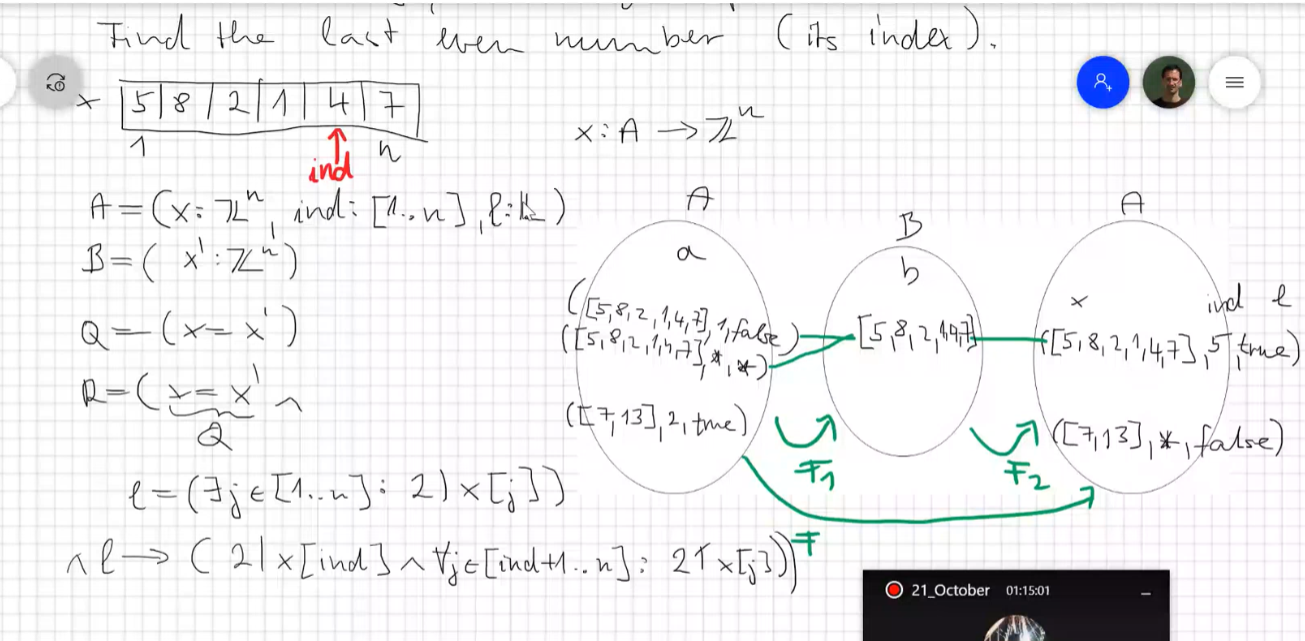 Find the last even number (its index).
x 5 8 2 1 4 7
1 ind n
x: A → ℤⁿ
A = (x: ℤⁿ, ind: [1..n], l: 𝕃)
B = ( x' : ℤⁿ')
Q = (x = x')
R = (x = x' ∧
Q
l = (∃j ∈ [1..n] : 2|x[j])
∧ l → ( 2|x[ind] ∧ ∀j∈[ind+1..n]: 2∤x[j]))
A
a
([5,8,2,1,4,7], 1, false)
([5,8,2,1,4,7], *, *)
([7,13], 2, true)
B
b
[5,8,2,1,4,7]
A
x ind l
([5,8,2,1,4,7], 5, true)
([7,13], *, false)
F1
F2
F
21_October 01:15:01